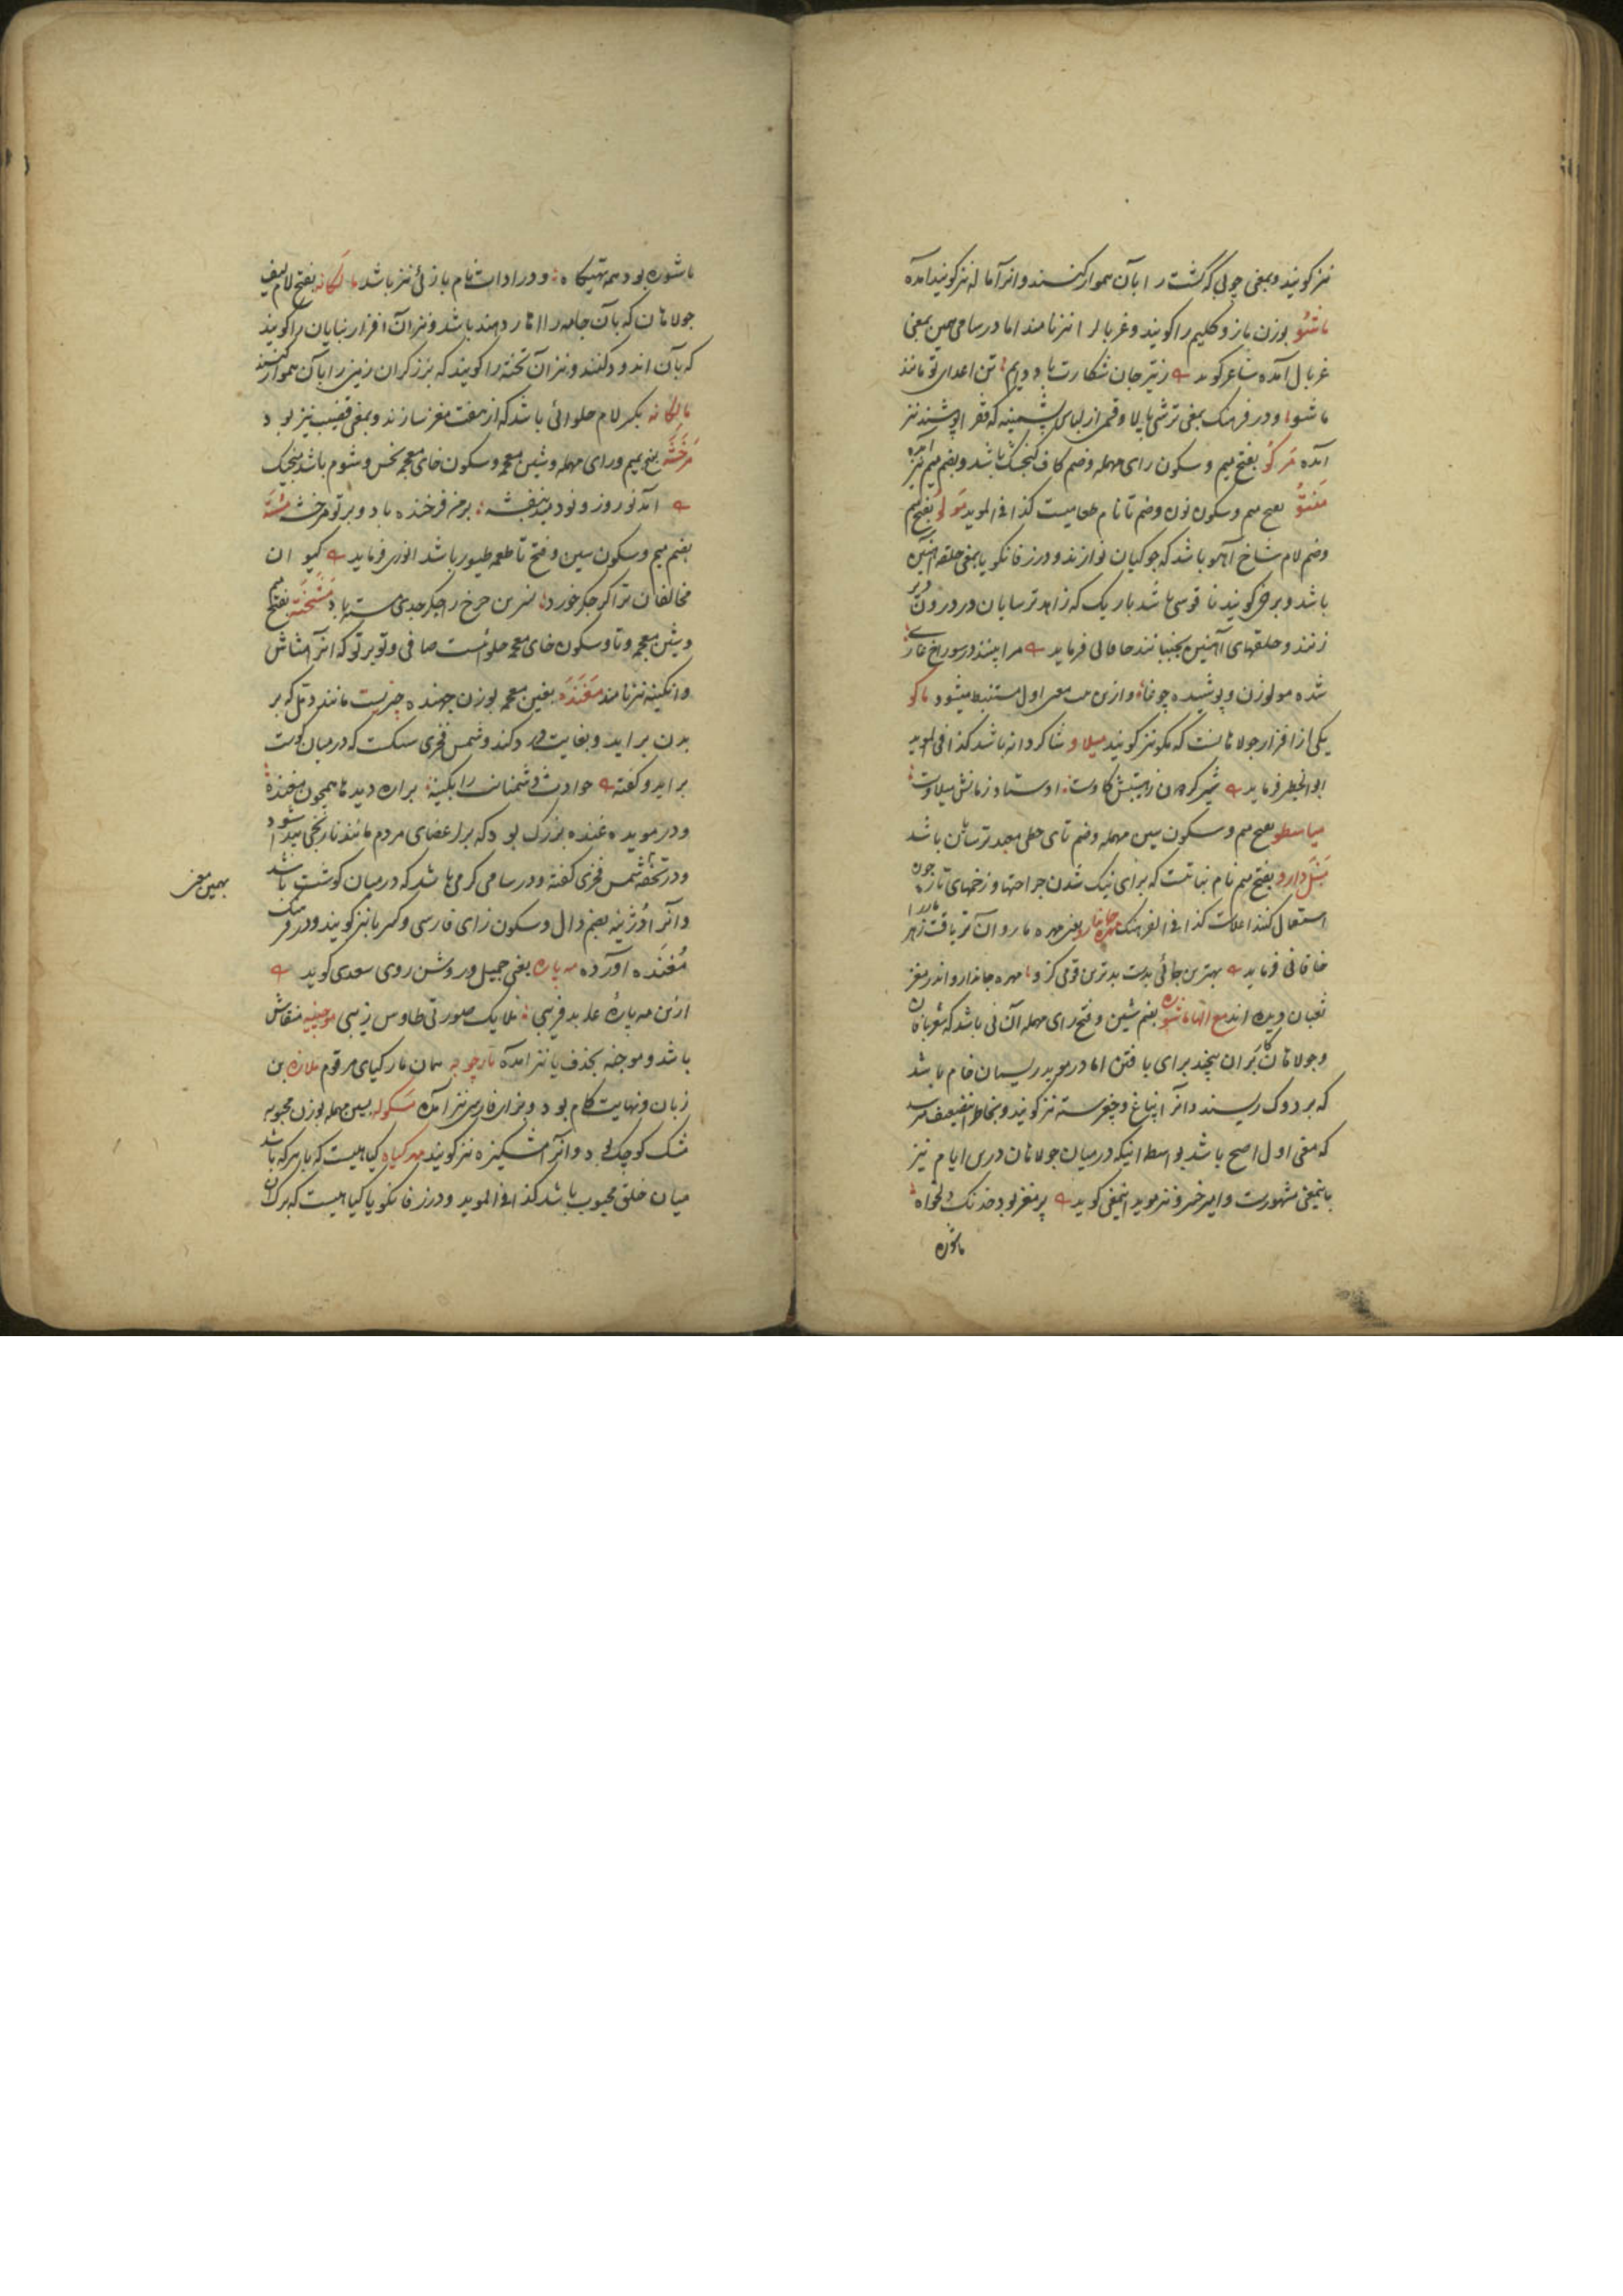 نیز کویند و بمعنی چوبی که کشت را بآن هموار کنند و انرا ماله نیز کویند آمده
ماشو بوزن بازو کلیم را کویند و غربال را نیز نامند اما در سامی همین بمعنی
غربال آمده شاعر کوید ز تیر جان شکارت باد دایم تن اعدای تو مانند
ماشو و در فرهنک بمعنی ترشی پالا و قسمی از لباس پشمینه که فقرا پوشند نیز
آمده مرکو بفتح میم و سکون رای مهمله و ضم کاف کنجشک باشد و بضم میم نیز آمده
منتو بفتح میم و سکون نون و ضم تا نام طعامیست کذا فی الموید مولو بفتح میم
و ضم لام شاخ آهو باشد که جوکیان نوازند و در زفانکویا بمعنی حلقه آهنین
باشد و برخی کویند ناقوسی باشد باریک که زاهد ترسایان در درون دیر
زنند و حلقهای آهنین بجنبانند خاقانی فرماید مرا بینند در سوراخ غاری
شده مولوزن و پوشیده چوخا و ازین بیت معنی اول مستنبط میشود ماکو
یکی از افزار جولاهانست که مکو نیز کویند میلاو شاکردانه باشد کذا فی الموید
ابوالخطیر فرماید
میاسطو بفتح میم و سکون سین مهمله و ضم تای حطی معبد ترسایان باشد
منبل دارو بفتح میم نام نباتیست که برای نیک شدن جراحتها و زخمهای تازه چون
استعمال کنند کذا فی الفرهنک مهره جاندارو یعنی مهره مار و آن تریاقت زهر مار را
خاقانی فرماید بهترین جائی بدست بدترین قومی کرو مهره جاندارو اندر مغز
ثعبان دیده اند مع الها ماشوره بضم شین و فتح رای مهمله آن نی باشد که شعربافان
و جولاهان بران پیچند برای بافتن اما در موید ریسمان خام باشد
که بر دوک ریسند و انرا و چغرسته نیز کویند و بخاطر اینضعیف میرسد
که معنی اول اصح باشد بواسطه اینکه در میان جولاهان درین ایام نیز
باینمعنی مشهورست و امیر خسرو نیز موید اینمعنی کوید پر مغز بود خدنک دلخواه
ماشوره
ماشوره بود همه تهیکاه و در ادات نام بازئی نیز باشد مالکانه بفتح لام لیف
جولاهان که بآن جامه را آهار دهند باشد و نیز آن افزار بنایان را کویند
که بآن اندود کنند و نیز آن تخته را کویند که برزکران زمین را بآن هموار کنند
مالکانه بکسر لام حلوائی باشد که از هفت مغز سازند و بمعنی قضیب نیز بود
مرخشه بفتح میم و رای مهمله و شین معجمه و سکون خای معجمه نحس و شوم باشد منجیک
آمد نوروز و نو دمید بنفشه بر من فرخنده باد و بر تو مرخشه مسته
بضم میم و سکون سین و فتح تا طعمه طیور باشد انوری فرماید کیوان
مخالفان ترا کر جکر خورد نسرین چرخ را جکر جدی مسته باد مشخته بفتح میم
و شین معجمه و تا و سکون خای معجمه حلوائیست صافی و توبرتو که انرا مشاش
و انکبینه نیز نامند مغنده بغین معجمه بوزن جهنده چیزیست مانند دمل که بر
بدن براید و بغایت درد کند و شمس فخری که در میان کوشت
براید و کفته حوادث دشمنانت را بکینه برآرد دیدها همچون مغنده
و در موید غنده بزرک بود که بر اعضای مردم مانند نارنجی پیدا شود
و در تحفه تا شمس فخری کفته و در سامی کرهی باشد که در میان کوشت باشد
بهمین معنی
و انرا دژنه بضم دال و سکون زای فارسی و کسر با نیز کویند و در فرهنک
مغنده آورده مه پاره یعنی جمیل و روشن روی سعدی کوید
ازین مه پاره عابد فریبی ملایک صورتی طاوس زیبی موچینه منقاش
باشد و موچنه بحذف یا نیز آمده مارچوبه همان مارکیای مرقوم ملازه بن
زبان و نهایت کام بود و بزای فارسی نیز آمده مسکوله بسین مهمله بوزن محبوبه
مشک کوچک بود و انرا مشکیزه نیز کویند مهرکیاه کیاهیست که با هر که باشد
میان خلق محبوب باشد کذا فی الموید و در زفانکویا کیاهیست که برک آن